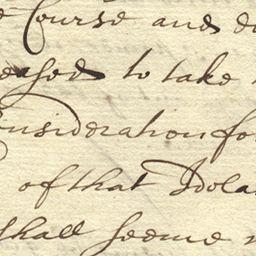 Course and
eased to take
onsideration fo
of that Idola
shall seeme